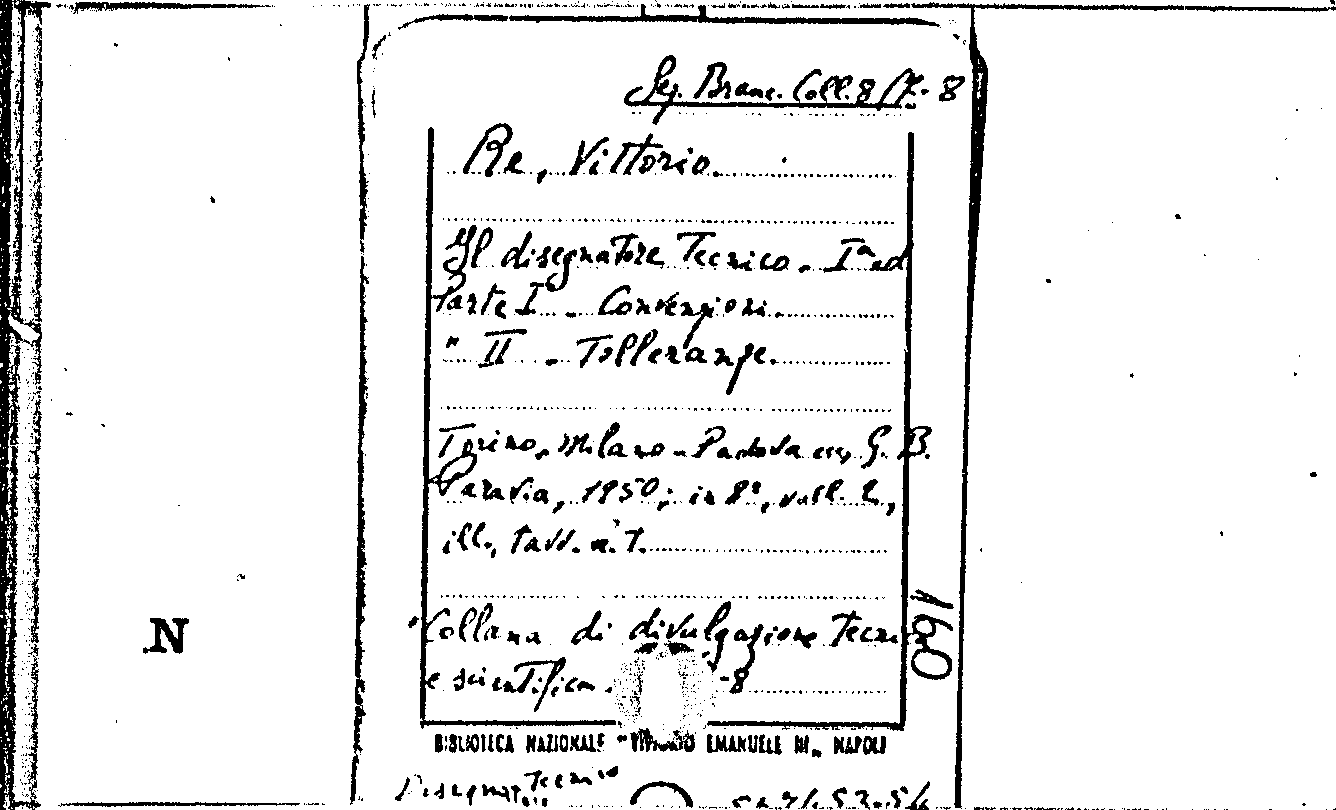 Sez. Branc. Coll. 8/7-8
Re, Vittorio.
Il disegnatore Tecnico. Iª ed
Parte I - Convenzioni.
" II - Tolleranze.
Torino, Milano - Padova G. B.
Paravia, 1950; in 8°, voll. 2,
ill., tavv. n. T.
"Collana di divulgazione Tecnica
e scientifica. -8
BIBLIOTECA NAZIONALE "VITTORIO EMANUELE III" NAPOLI
Disegnat. Tecnico
160
N